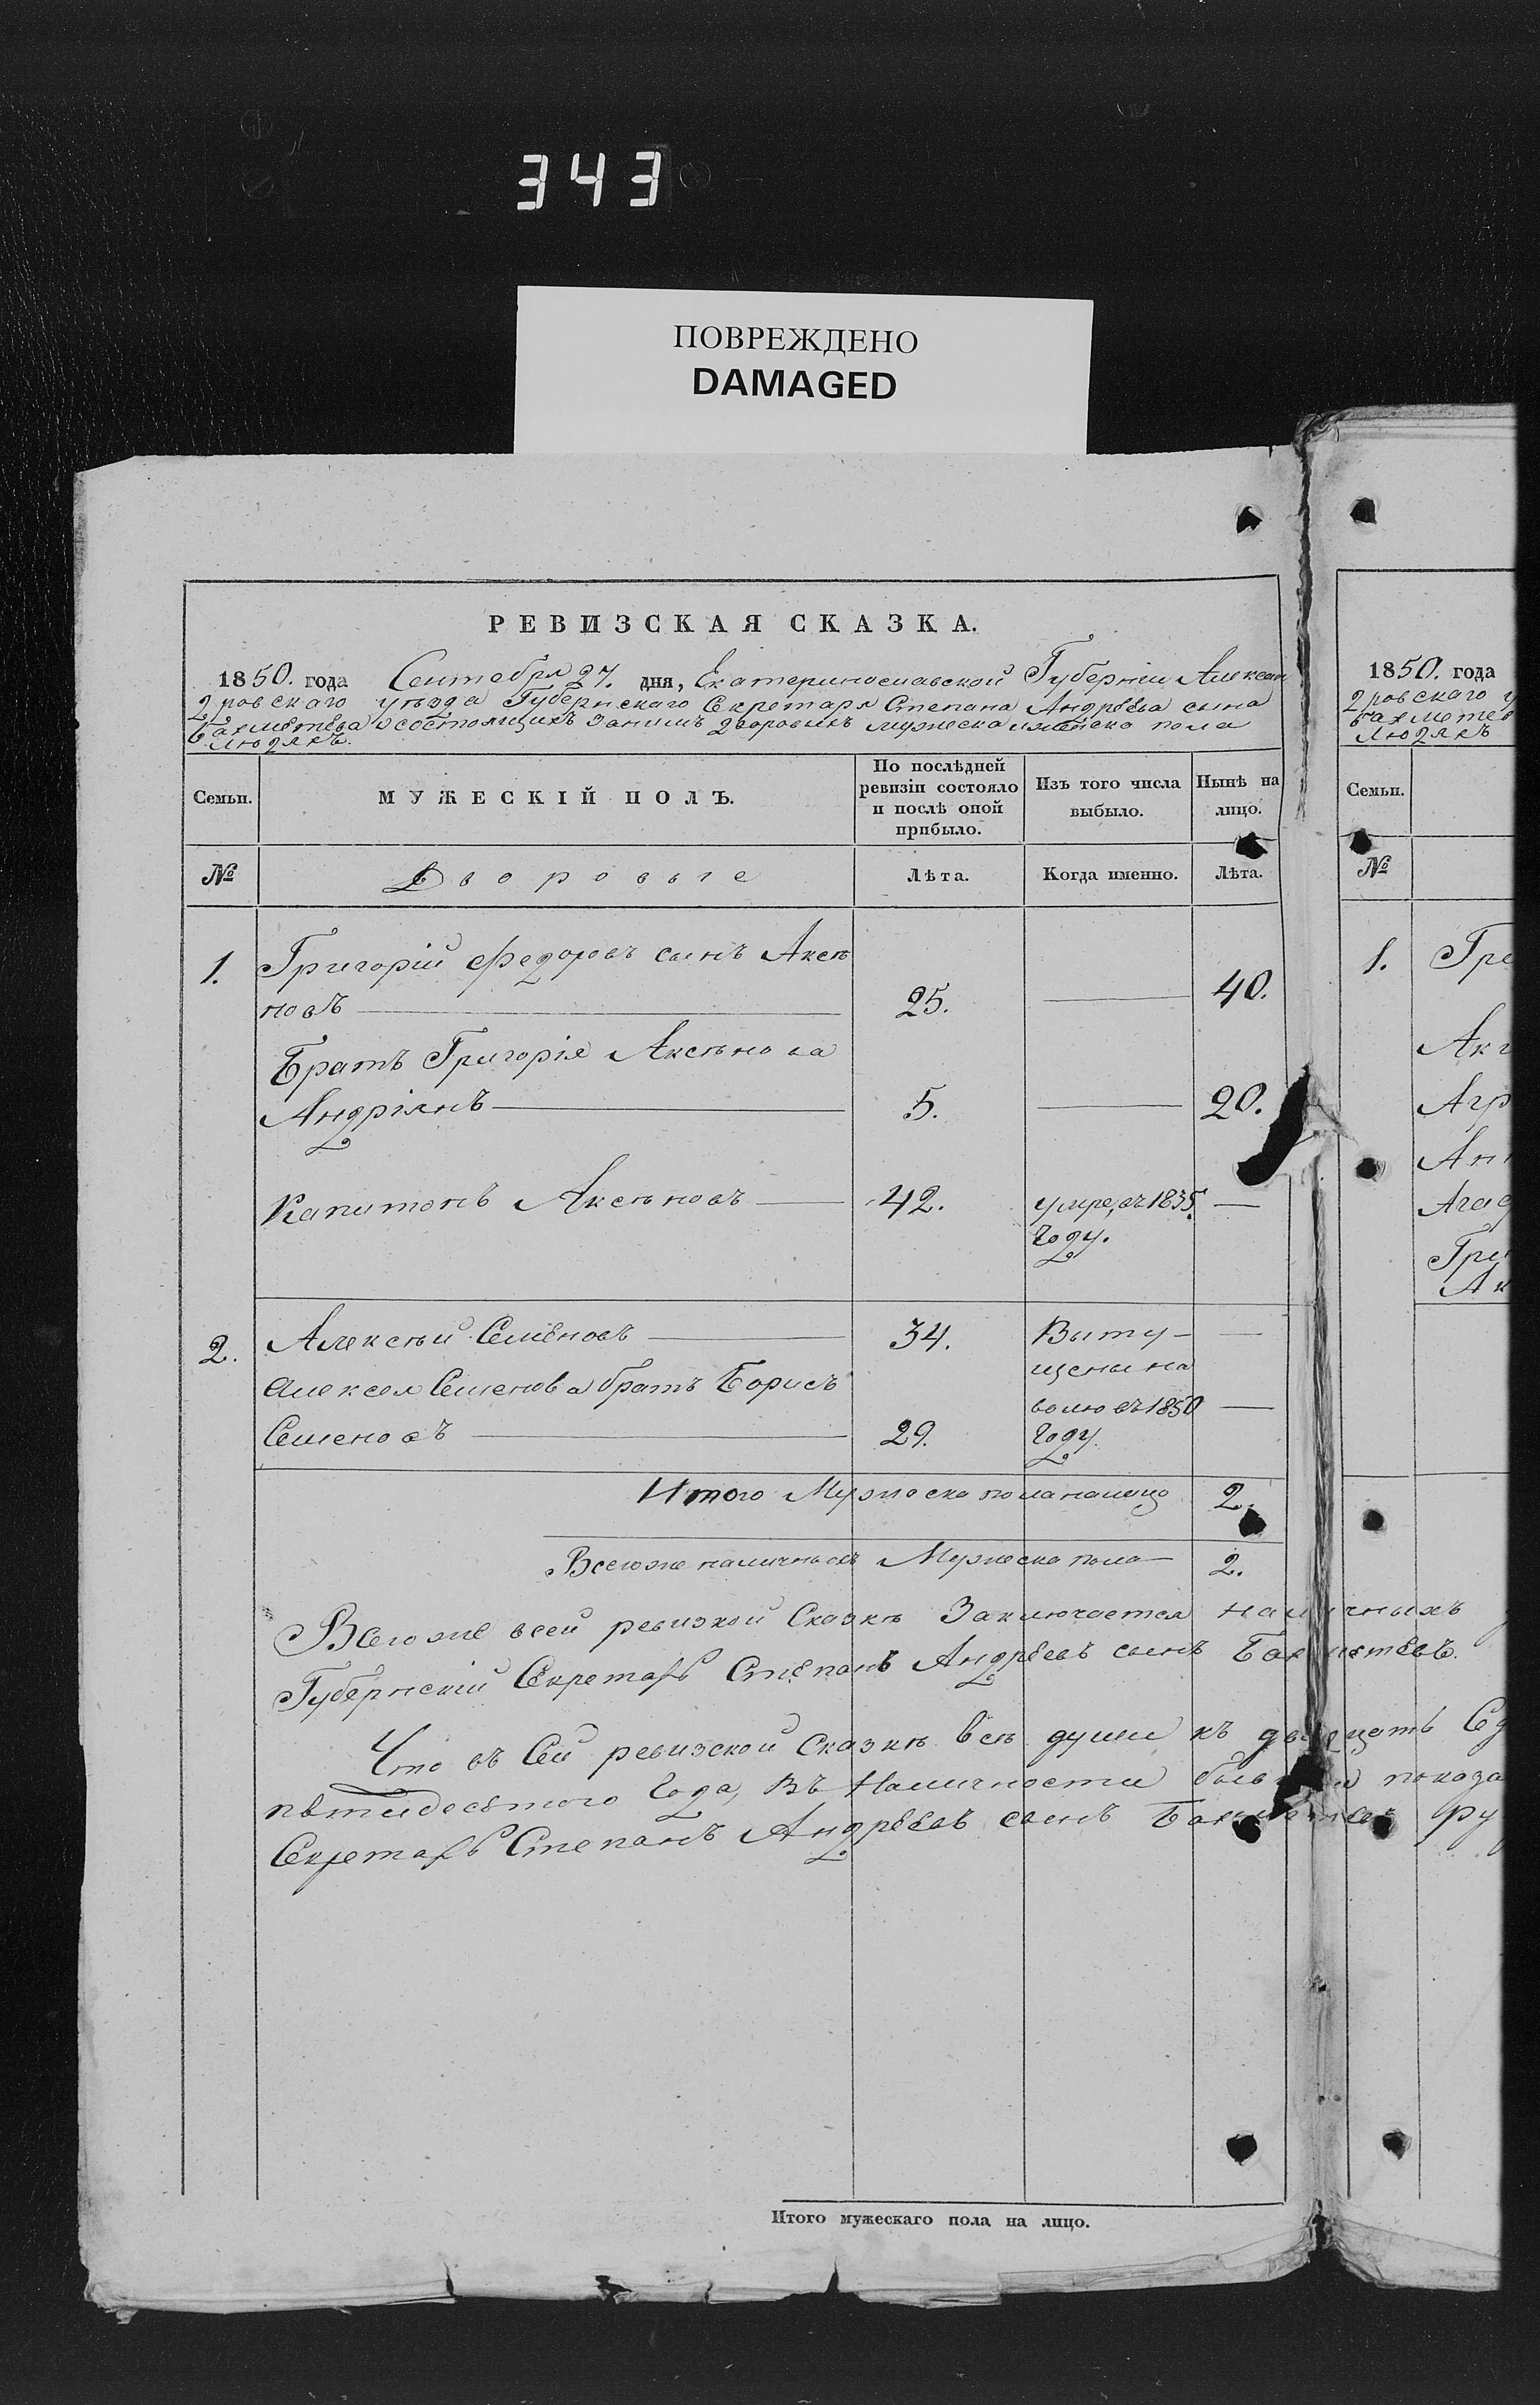 343
ПОВРЕЖДЕНО
DAMAGED
РЕВИЗСКАЯ СКАЗКА.
1850. года Сентября 27. дня, Екатеринославской Губерніи Алексан
дровскаго уѣзда Губернскаго Секретаря Степана Андрѣева сына
Бахметева о состоящихъ за нимъ дворовыхъ мужеска и женска пола
людяхъ.
Семьи.
МУЖЕСКІЙ ПОЛЪ.
По послѣдней ревизіи состояло и послѣ оной прибыло.
Изъ того числа выбыло.
Нынѣ на лицо.
№ Дворовые Лѣта. Когда именно. Лѣта.
1. Григорій Федоровъ сынъ Аксѣ
новъ 25. 40.
Братъ Григорія Аксѣнова
Андріянъ 5. 20.
Капитонъ Аксѣновъ 42. умре въ 1835
году.
2. Алексѣй Семеновъ 34. Выпу-
щены на
Алексея Семенова братъ Борисъ
волю въ 1850
Семеновъ 29. году.
Итого Мужеска пола налицо 2.
Всего же наличныхъ Мужеска пола 2.
Всего же всей ревизкой Сказкѣ Заключается наличныхъ
Губернскій Секретарь Степанъ Андрѣевъ сынъ Бахметевъ.
Что въ Сей ревизской Сказкѣ всѣ души къ двадцать Се
пѣтидесѣтого Года, въ Наличности были показа
Секретарь Степанъ Андрѣевъ сынъ Бахметевъ ру
Итого мужескаго пола на лицо.
1850. года
дровскаго у
Бахметев
людяхъ
Семьи.
№
1. Гри
Ак
Агр
Ан
Ага
Гри
Ак